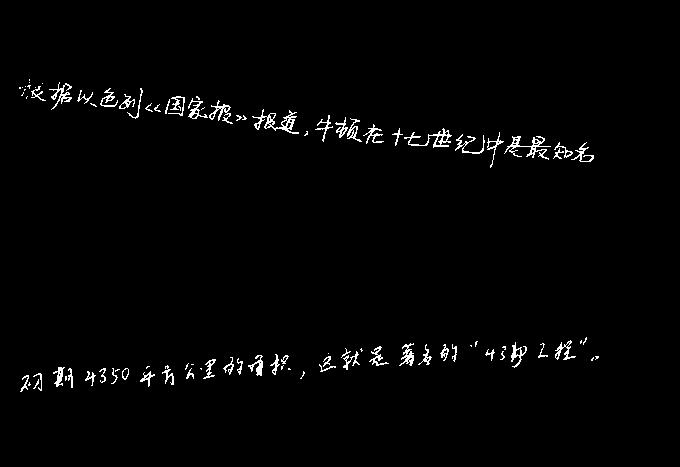 根据以色列《国家报》报道,牛顿在十七世纪中是最知名
初期4350平方公里的面积,这就是著名的"43工程"。